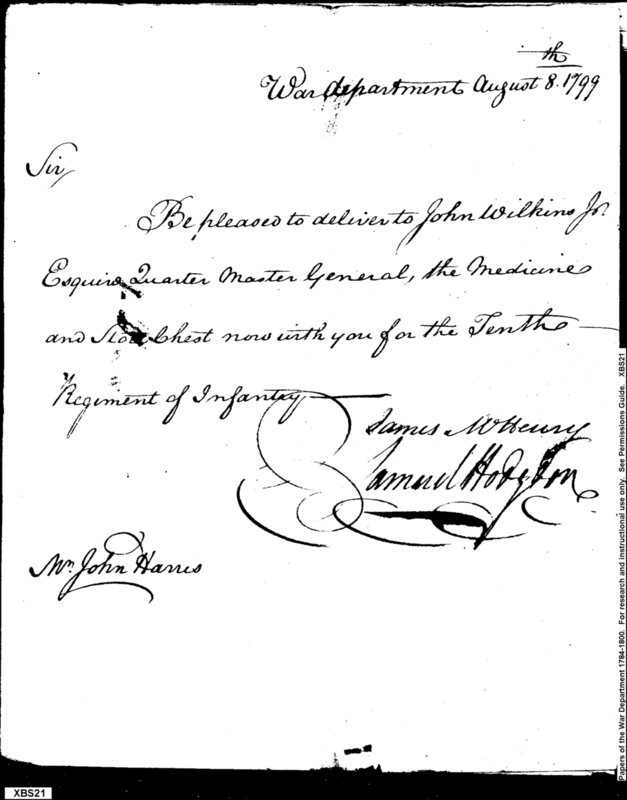 th
War department August 8. 1799
Sir,
Be pleased to deliver to John Wilkins Jr.
Esquire Quarter Master General, the Medicine
and Store Chest now with you for the Tenth
Regiment of Infantry
James McHenry
Samuel Hodgdon
Mr. John Harris
XBS21
Papers of the War Department 1784-1800. For research and instructional use only. See Permissions Guide. XBS21